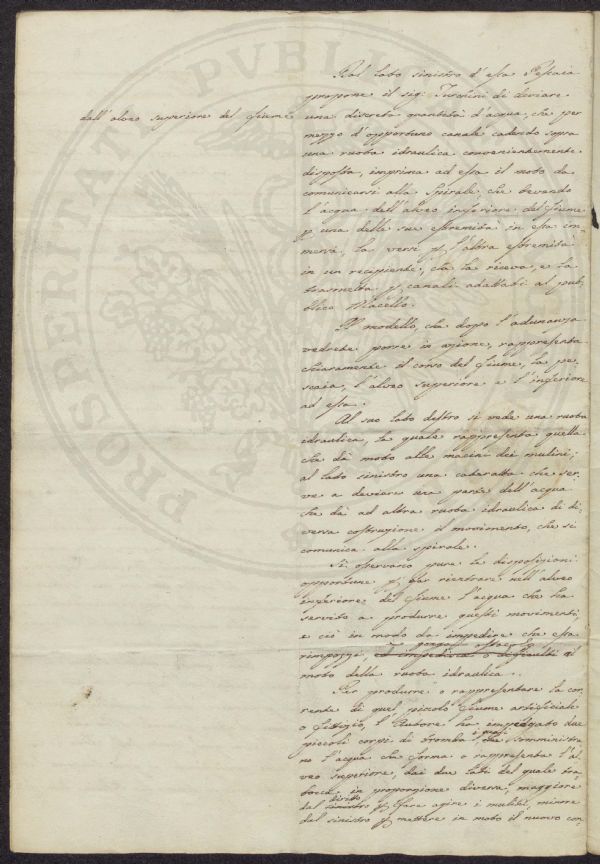 Dal lato sinistro d'essa Pescaia
propone il sig. Turchini di deviare
dall'alveo superiore del fiume
una discreta quantità d'acqua, che per
mezzo d'opportuno canale cadendo sopra
una ruota idraulica convenientemente
disposta, imprima ad essa il moto da
comunicarsi alla Spirale, che bevendo
l'acqua dell'alveo inferiore del fiume
p una delle sue estremità in essa im=
mersa, la versi p l'altra estremità
in un recipiente, che la riceva, e la
trasmetta p canali adattati al pub=
blico Macello.
Il modello, che dopo l'adunanza
vedrete porre in azione, rappresenta
chiaramente il corso del fiume, la pe=
scaia, l'alveo superiore e l'inferiore
ad essa.
Al suo lato destro si vede una ruota
idraulica, la quale rappresenta quella
che dà moto alle macini dei mulini;
al lato sinistro una cateratta che ser=
ve a deviare una parte dell'acqua
che dà ad altra ruota idraulica di di=
versa costruzione il movimento, che si
comunica alla spirale.
Si osservano pure le disposizioni
opportune p far rientrare nell'alveo
inferiore del fiume l'acqua che ha
servito a produrre questi movimenti,
e ciò in modo da impedire che essa
ponga ostacolo
rimpozzi ed impedisca o difficulti al
moto della ruota idraulica.
Per produrre o rappresentare la cor=
rente di quel piccolo fiume artificiale
o fittizio, l'Autore ha impiegato due
piccoli corpi di tromba, i quali somministra
no l'acqua che forma o rappresenta l'al=
veo superiore, dai due lati del quale tra=
bocca in proporzione diversa, maggiore
diritto
dal sinistro p fare agire i mulini, minore
dal sinistro p mettere in moto il nuovo con=
PROSPERITATI PVBLIC